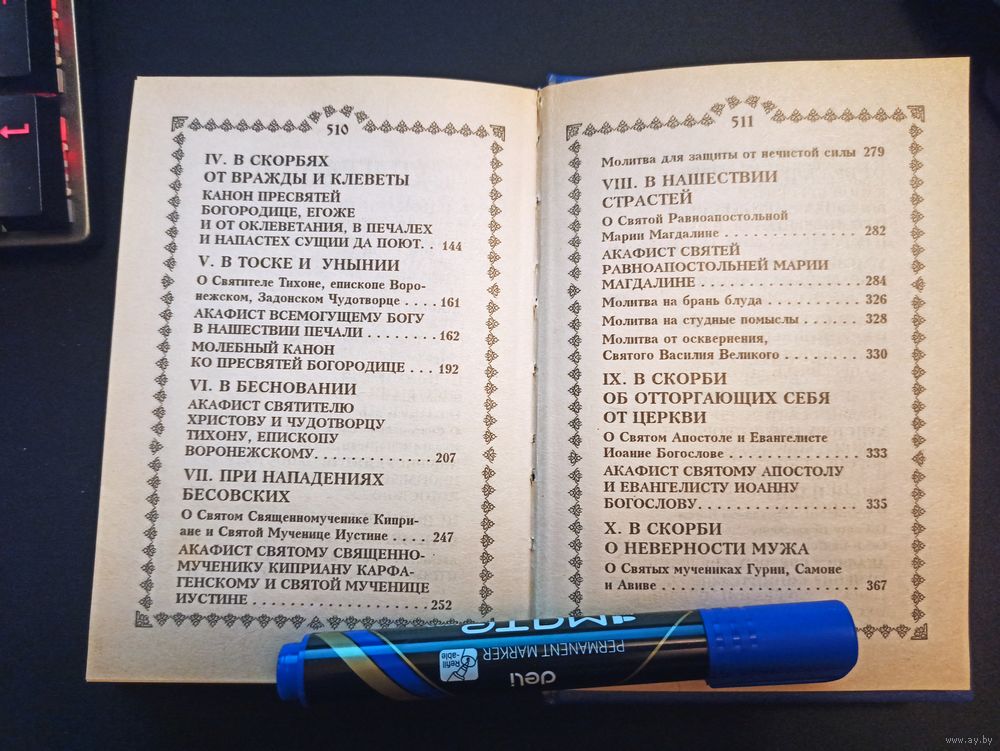 510
IV. В СКОРБЯХ
ОТ ВРАЖДЫ И КЛЕВЕТЫ
КАНОН ПРЕСВЯТЕЙ
БОГОРОДИЦЕ, ЕГОЖЕ
И ОТ ОКЛЕВЕТАНИЯ, В ПЕЧАЛЕХ
И НАПАСТЕХ СУЩИИ ДА ПОЮТ. . 144
V. В ТОСКЕ И УНЫНИИ
О Святителе Тихоне, епископе Воро-
нежском, Задонском Чудотворце . . . . 161
АКАФИСТ ВСЕМОГУЩЕМУ БОГУ
В НАШЕСТВИИ ПЕЧАЛИ . . . . . . . . 162
МОЛЕБНЫЙ КАНОН
КО ПРЕСВЯТЕЙ БОГОРОДИЦЕ . . . 192
VI. В БЕСНОВАНИИ
АКАФИСТ СВЯТИТЕЛЮ
ХРИСТОВУ И ЧУДОТВОРЦУ
ТИХОНУ, ЕПИСКОПУ
ВОРОНЕЖСКОМУ. . . . . . . . . . . . . 207
VII. ПРИ НАПАДЕНИЯХ
БЕСОВСКИХ
О Святом Священномученике Кипри-
ане и Святой Мученице Иустине . . . . 247
АКАФИСТ СВЯТОМУ СВЯЩЕННО-
МУЧЕНИКУ КИПРИАНУ КАРФА-
ГЕНСКОМУ И СВЯТОЙ МУЧЕНИЦЕ
ИУСТИНЕ . . . . . . . . . . . . . . . . . . . 252
511
Молитва для защиты от нечистой силы 279
VIII. В НАШЕСТВИИ
СТРАСТЕЙ
О Святой Равноапостольной
Марии Магдалине . . . . . . . . . . . . . . . 282
АКАФИСТ СВЯТЕЙ
РАВНОАПОСТОЛЬНЕЙ МАРИИ
МАГДАЛИНЕ . . . . . . . . . . . . . . . . . 284
Молитва на брань блуда . . . . . . . . . . 326
Молитва на студные помыслы . . . . . . 328
Молитва от осквернения,
Святого Василия Великого . . . . . . . . 330
IX. В СКОРБИ
ОБ ОТТОРГАЮЩИХ СЕБЯ
ОТ ЦЕРКВИ
О Святом Апостоле и Евангелисте
Иоанне Богослове . . . . . . . . . . . . . . . 333
АКАФИСТ СВЯТОМУ АПОСТОЛУ
И ЕВАНГЕЛИСТУ ИОАННУ
БОГОСЛОВУ. . . . . . . . . . . . . . . . . . 335
X. В СКОРБИ
О НЕВЕРНОСТИ МУЖА
О Святых мучениках Гурии, Самоне
и Авиве . . . . . . . . . . . . . . . . . . . . . . 367
PERMANENT MARKER
Refill
-able
deli
www.ay.by